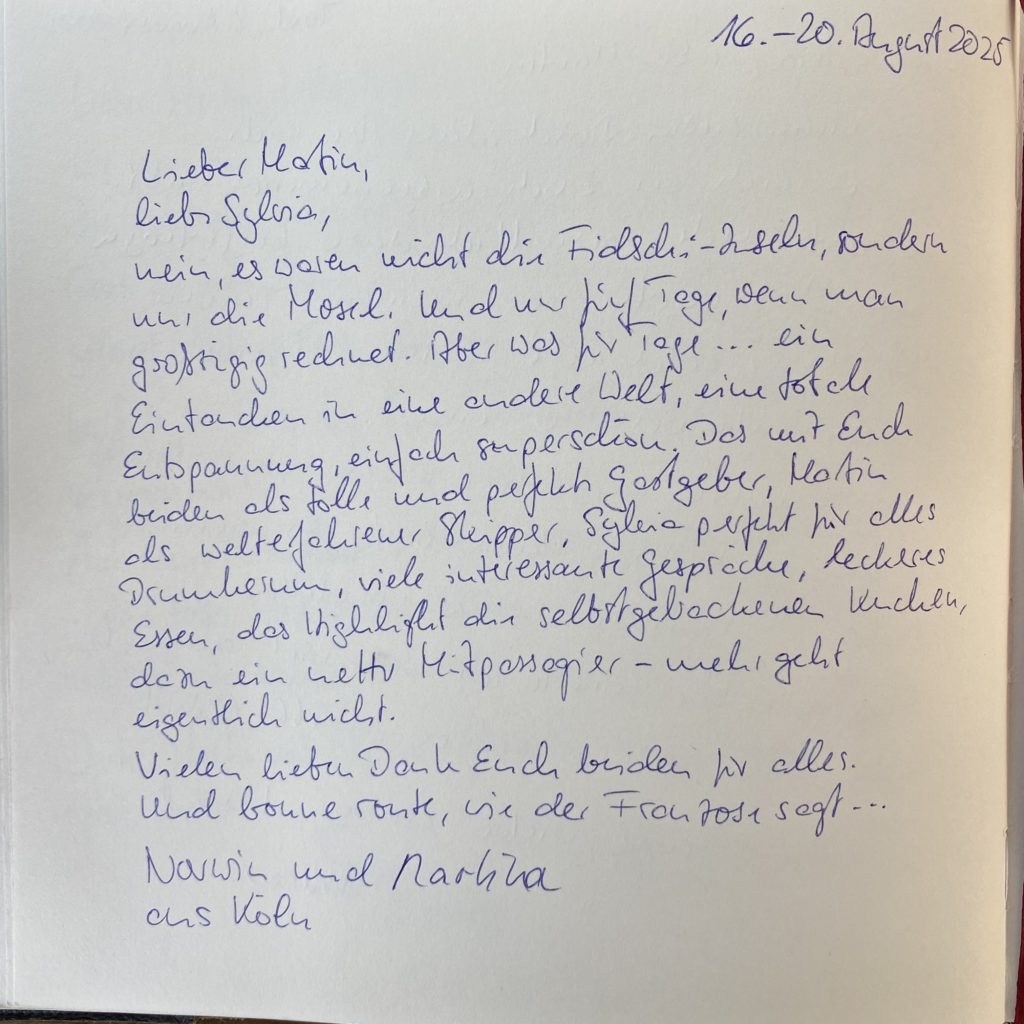 16.–20. August 2025
Lieber Martin,
liebe Sylvia,
nein, es waren nicht die Fidschi-Inseln, sondern
nur die Mosel. Und nur fünf Tage, wenn man
großzügig rechnet. Aber was für Tage ... ein
Eintauchen in eine andere Welt, eine totale
Entspannung, einfach superschön. Das mit Euch
beiden als tolle und perfekte Gastgeber, Martin
als welterfahrener Skipper, Sylvia perfekt für alles
Drumherum, viele interessante Gespräche, leckeres
Essen, das Highlight die selbstgebackenen Kuchen,
dazu ein netter Mitpassagier – mehr geht
eigentlich nicht.
Vielen lieben Dank Euch beiden für alles.
Und bonne route, wie der Franzose sagt ...
Narwin und Martina
aus Köln